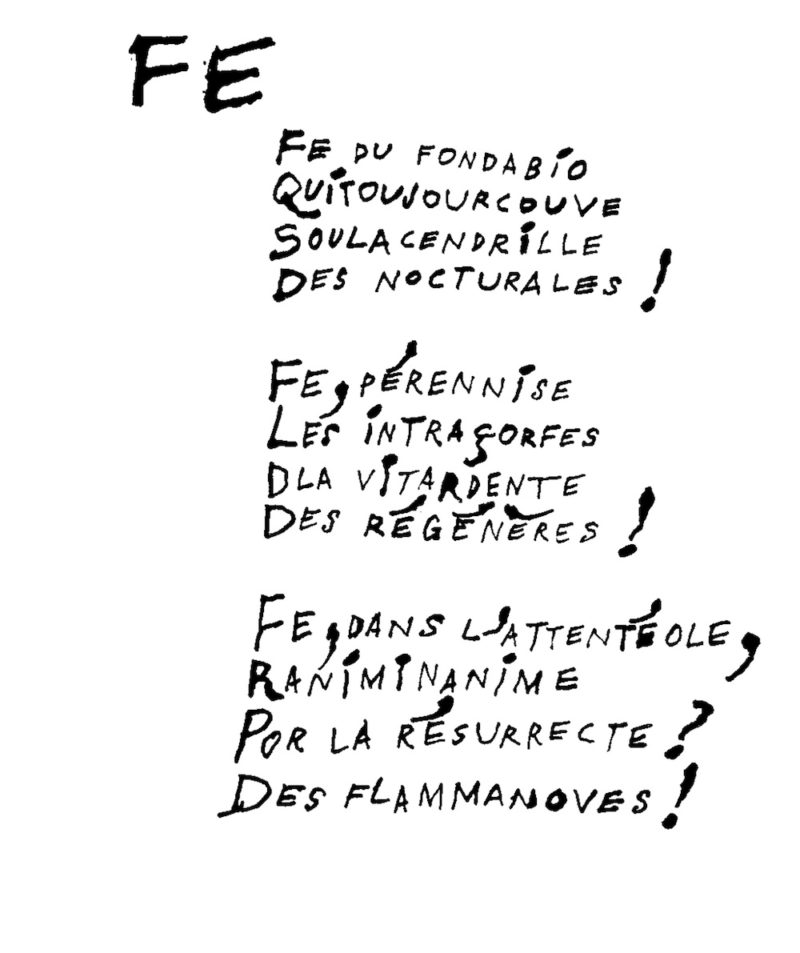 FE
FE DU FONDABIO
QUITOUJOURCOUVE
SOULACENDRILLE
DES NOCTURALES !
FE, PÉRENNISE
LES INTRAÇORFES
DLA VITARDENTE
DES RÉGÉNÈRES !
FE, DANS L'ATTENTÉOLE,
RANIMINANIME
POR LA RÉSURRECTE ?
DES FLAMMANOVES !